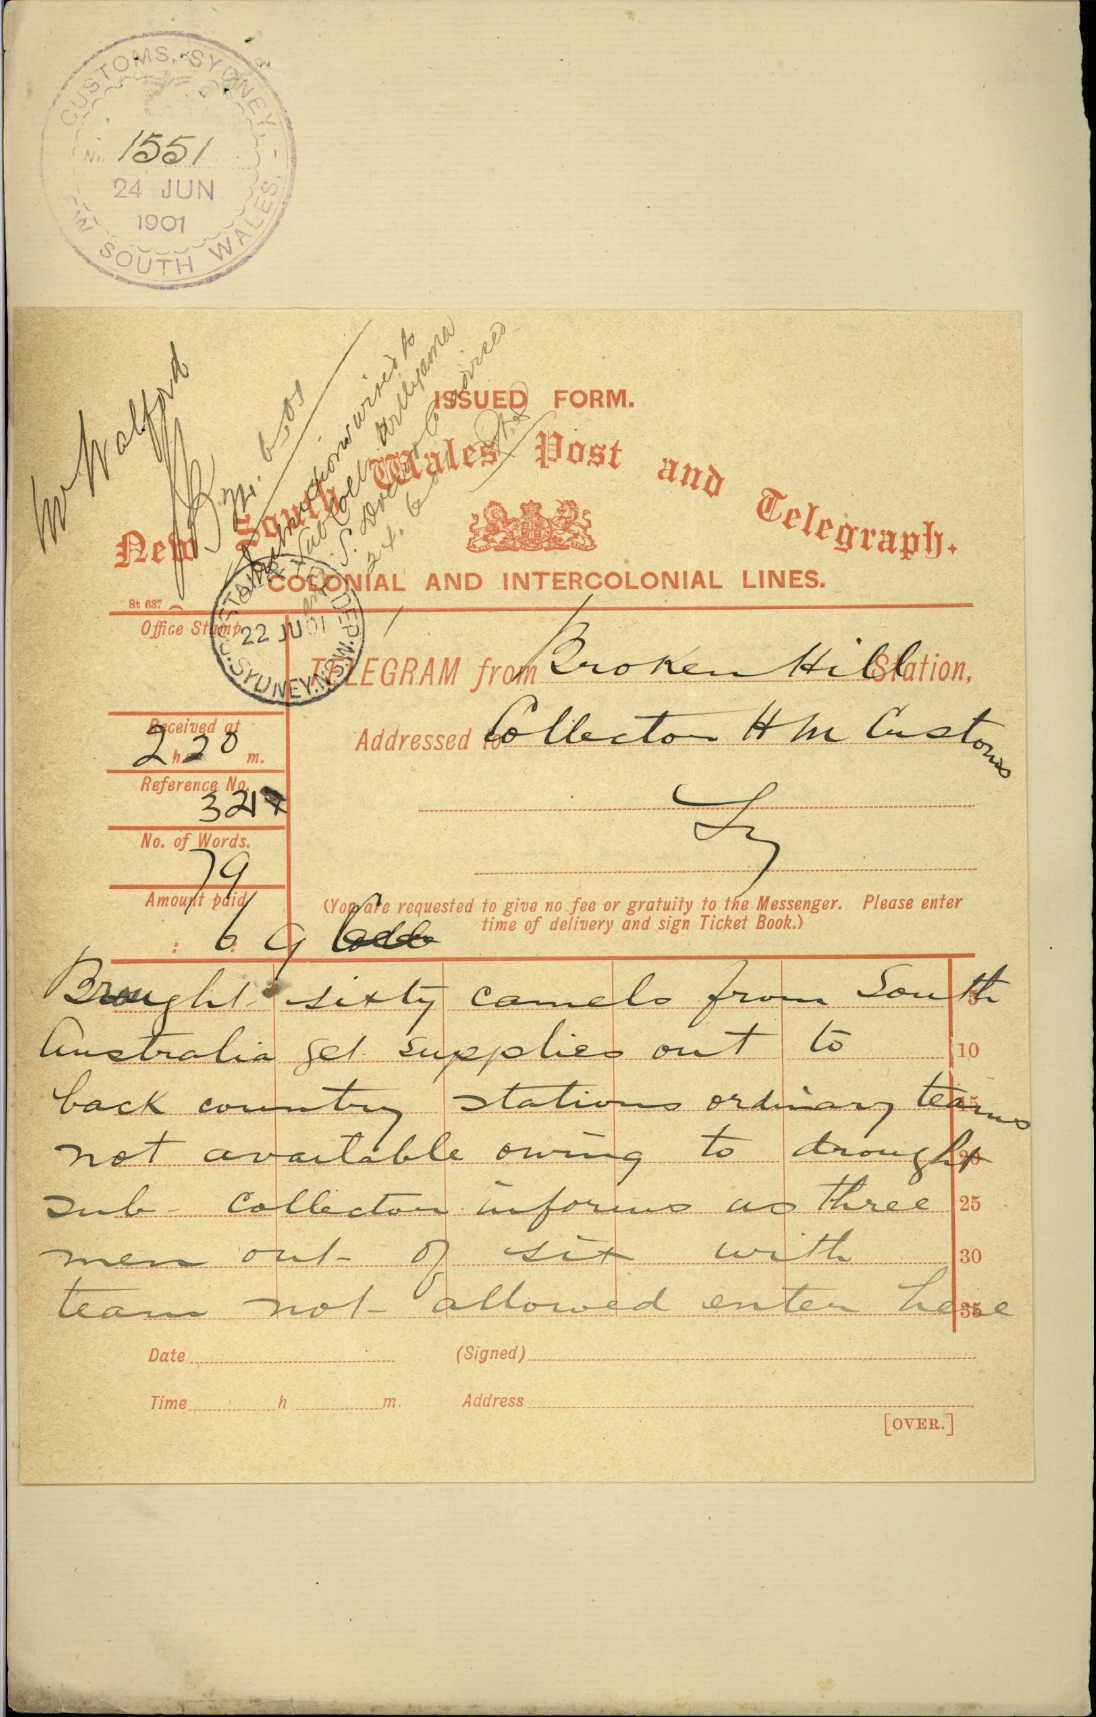 CUSTOMS, SYDNEY, - NEW SOUTH WALES.
No. 1551
24 JUN
1901
Mr Walford
Instructions wired to
Sub Coll Willyama
24.6
ISSUED FORM.
New South Wales Post and Telegraph.
COLONIAL AND INTERCOLONIAL LINES.
St 637
Office Stamp.
22 JU 01
SYDNEY.N.S.W.
TELEGRAM from Broken Hill Station,
Received at
2 h 20 m.
Addressed to Collector H M Customs
Reference No.
3217
Sy
No. of Words.
79
Amount paid
(You are requested to give no fee or gratuity to the Messenger. Please enter
time of delivery and sign Ticket Book.)
: 6 : 9
Brought sixty camels from South 5
Australia get supplies out to 10
back country stations ordinary teams 15
not available owing to drought 20
sub- collector informs us three 25
men out of six with 30
team not allowed enter here 35
Date (Signed)
Time h m. Address
[OVER.]